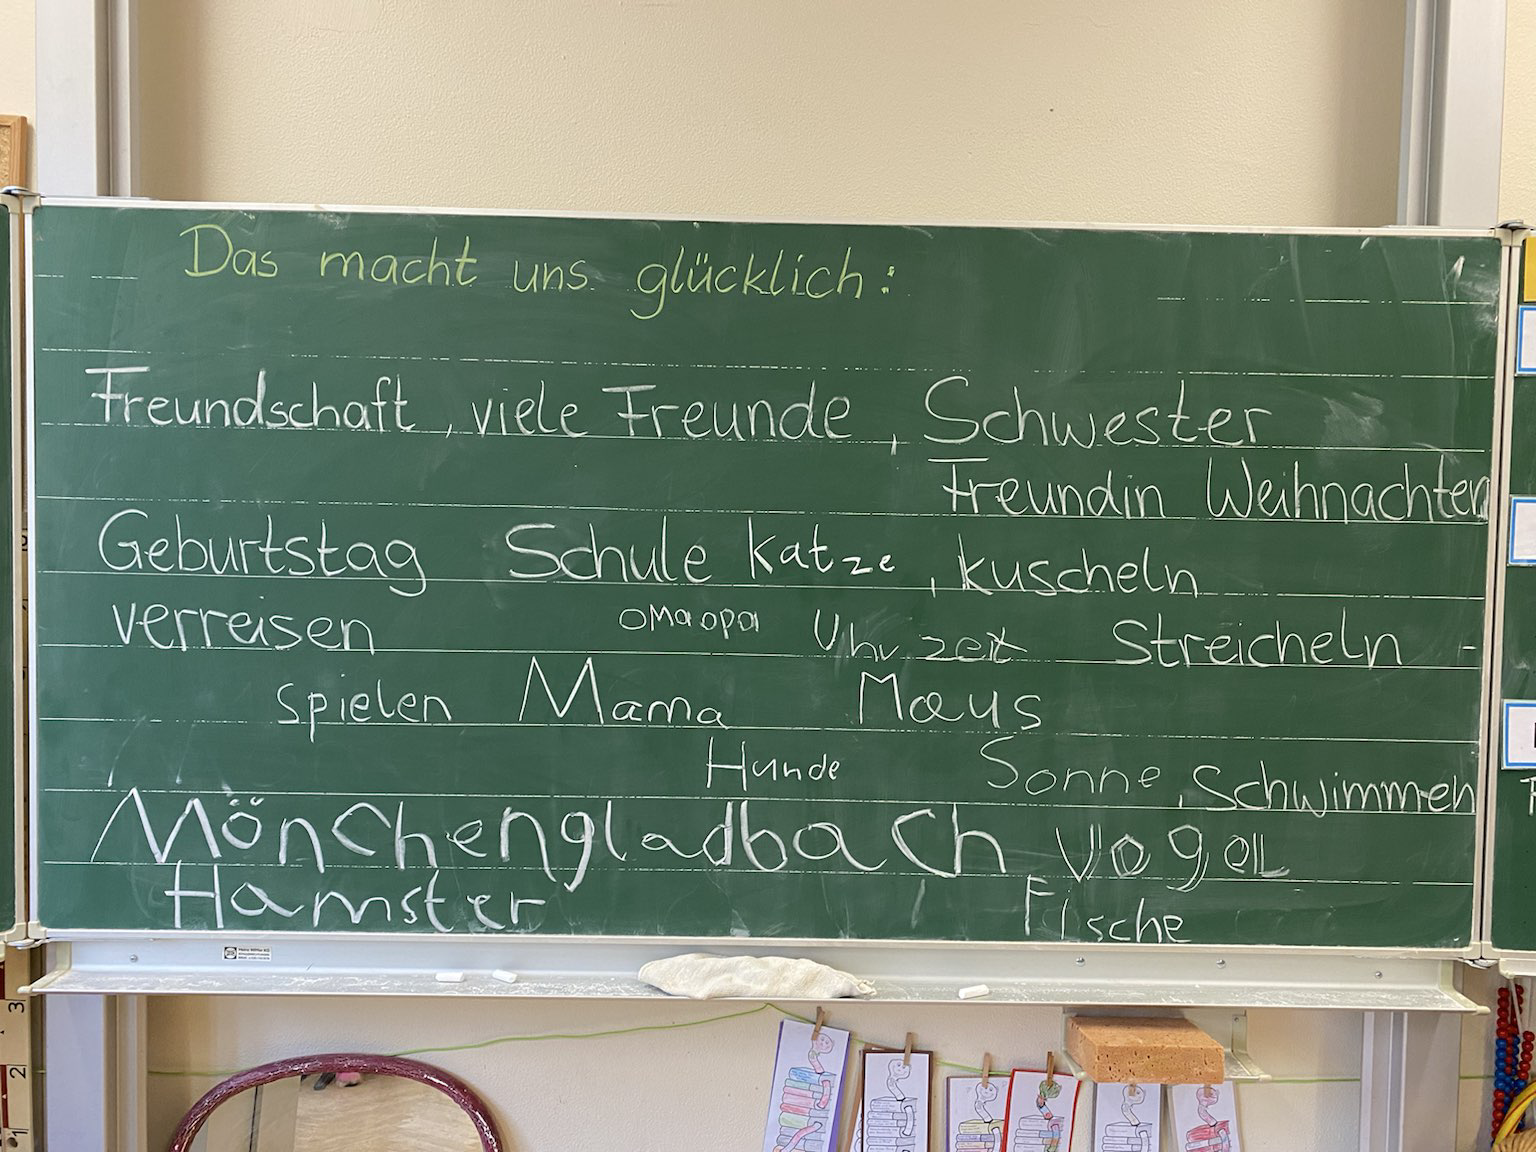 Das macht uns glücklich:
Freundschaft, viele Freunde, Schwester
Freundin Weihnachten
Geburtstag Schule Katze, kuscheln
verreisen omaopa Uhrzeit Streicheln
spielen Mama Maus
Hunde Sonne, Schwimmen
Mönchengladbach Vogel
Hamster Fische
3
2
1